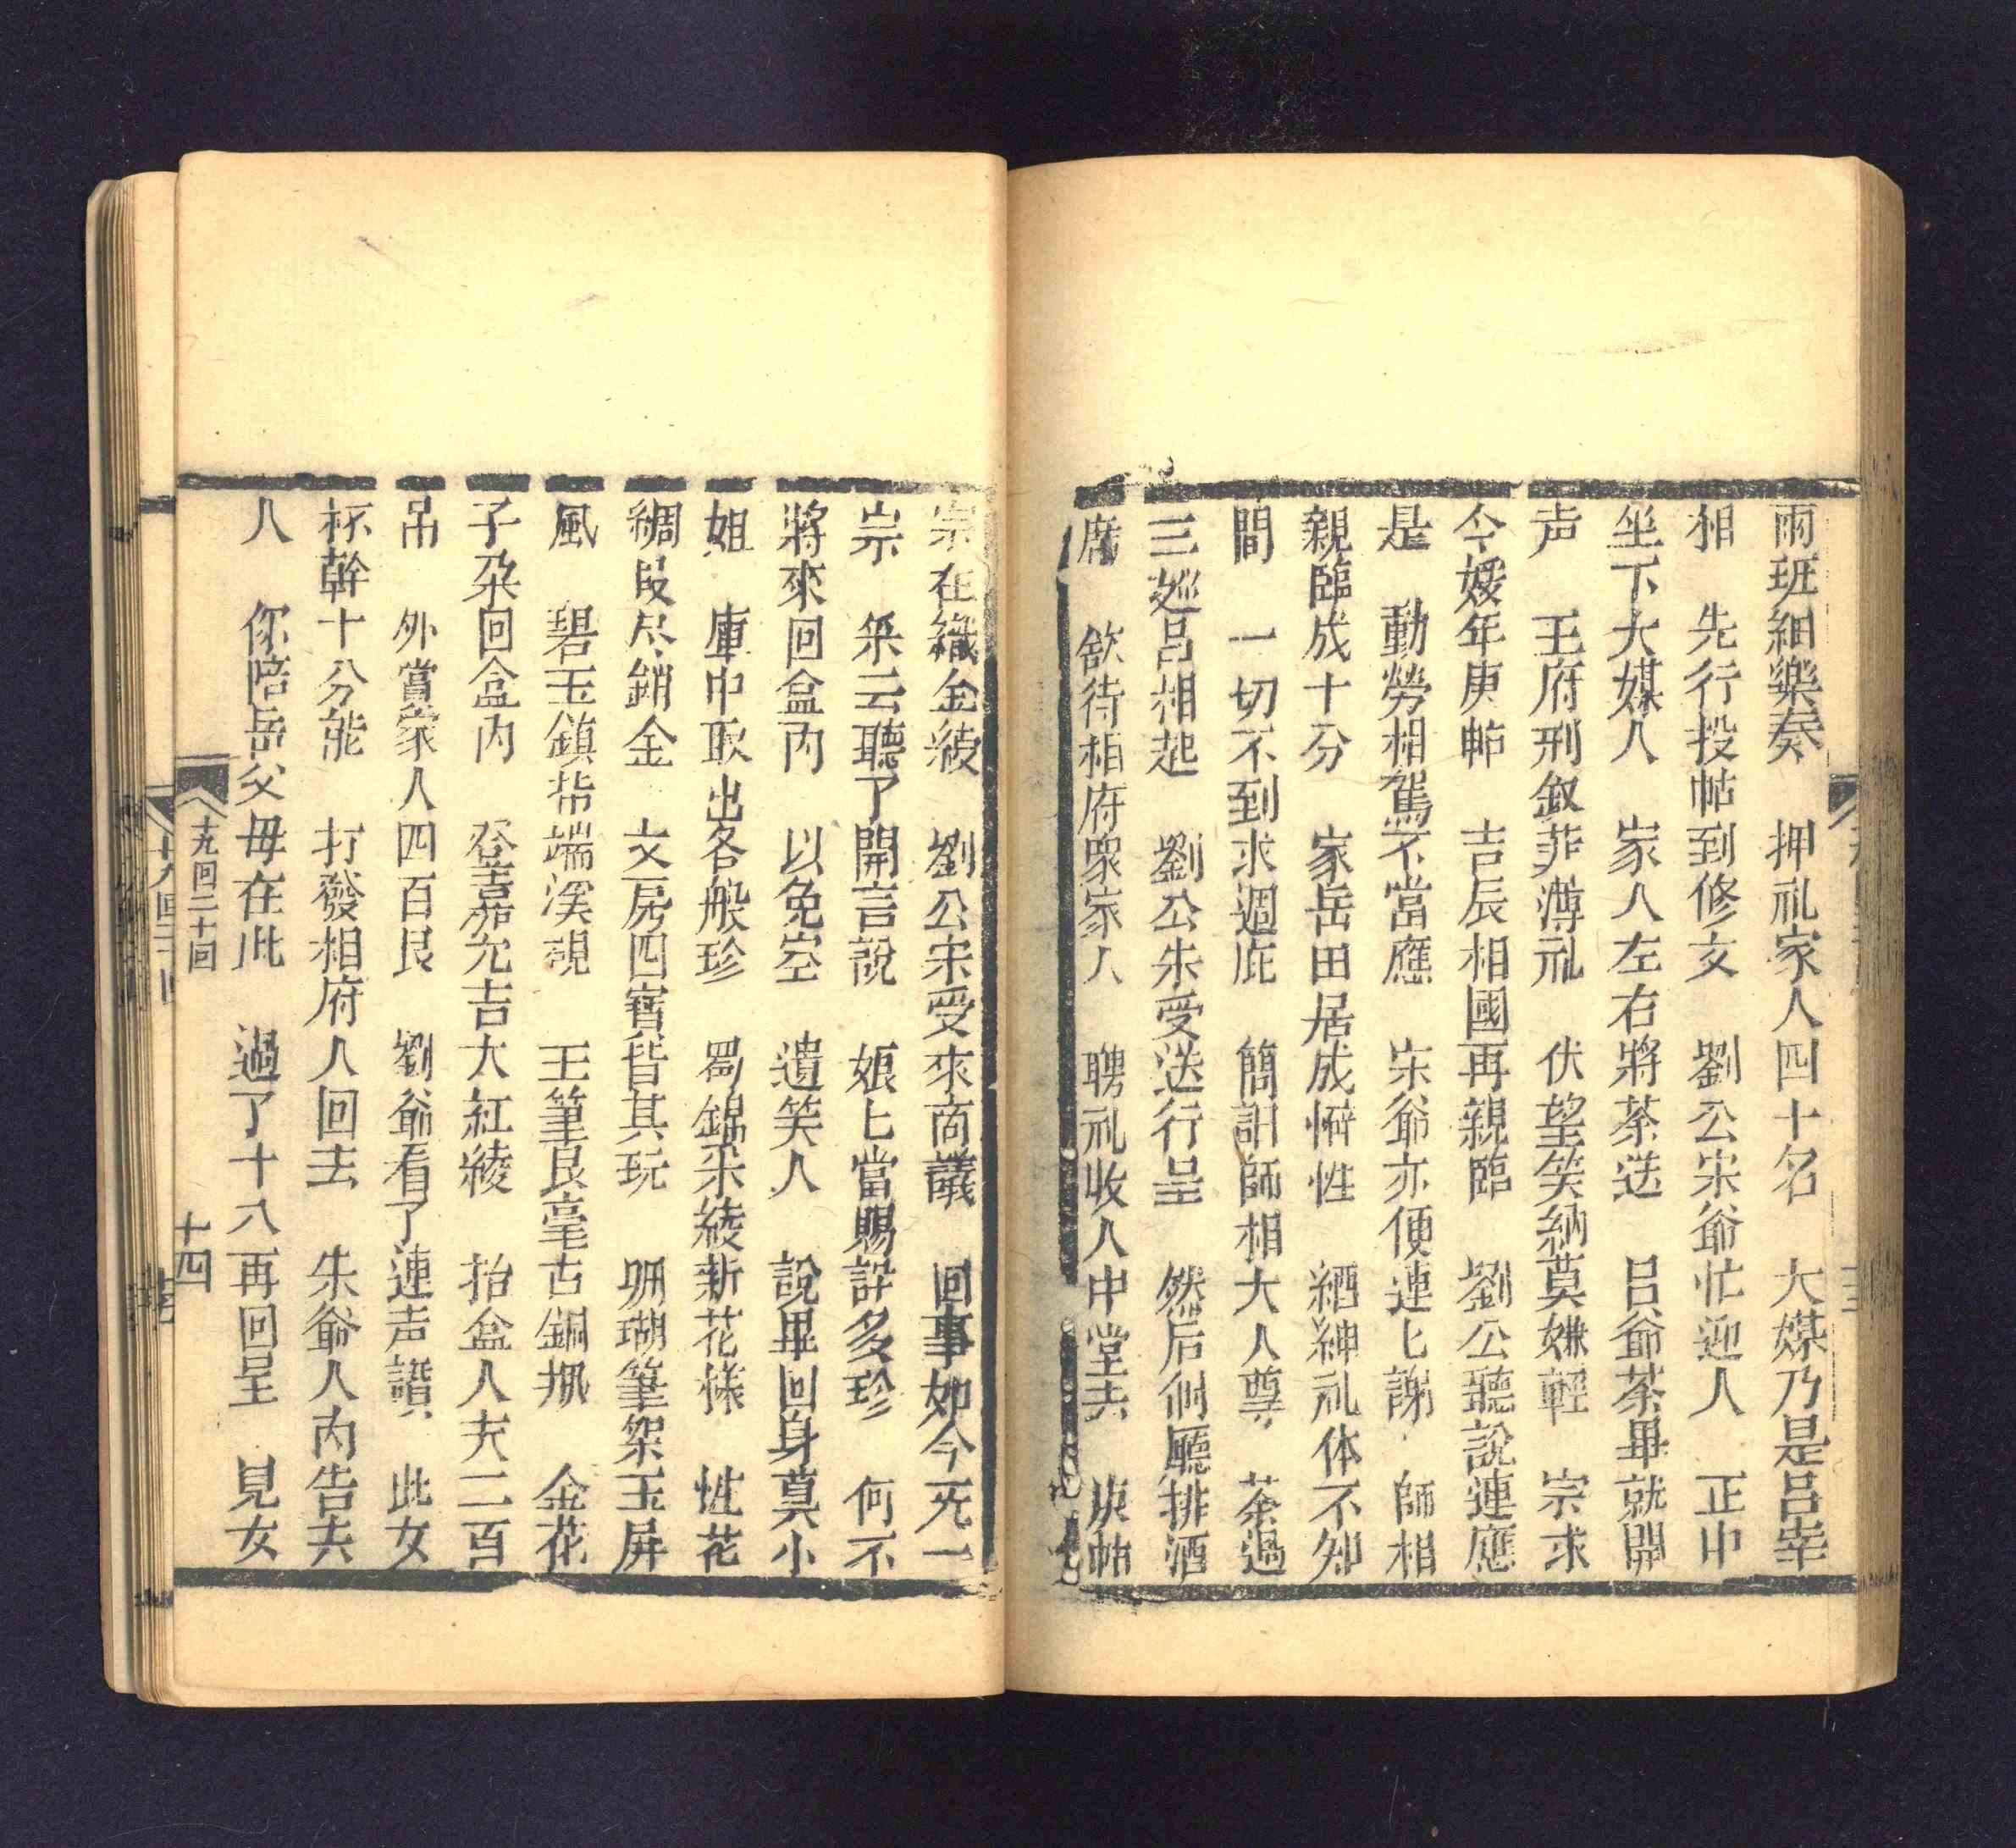 雨班細樂奏　押礼家人四十名　大媒乃是吕幸
相　先行投帖到修文　劉公宋爺忙迎人　正中
坐下大媒人　家人左右將茶送　吕爺茶畢就開
声　王府刑叙菲薄礼　伏望笑納莫嫌輕　宗求
令嫒年庚帖　吉辰相國再親臨　劉公聽說連應
是　動勞相駕不當應　宋爺亦便連匕謝　師相
親臨成十分　家岳田居成懶性　紳礼体不知
間　一切不到求週庇　簡師相大人尊　茶過
三廵吕相起　劉公朱受送行呈　然后側廳排酒
席　欵待相府眾家人　聘礼收人中堂去　庚帖
宗在織金綾　劉公宋受來商議　回事如今无一
宗　采云聽了開言說　娘匕當賜許多珍　何不
將來回盒内　以免空　遺笑人　說畢回身莫小
姐　庫中取出各般珍　蜀錦采綾新花樣　性花
綢段尽銷金　文房四寶皆其玩　珊瑚筆架玉屏
風　碧玉鎮帋端溪硯　王筆艮毫古銅瓶　金花
子朶回盒内　全書嘉允吉大紅綾　抬盒人夫二百
吊　外賞家人四百艮　劉爺看了連声讚　此女
杯幹十分能　打發相府人回去　朱爺人内告夫
人　你陪岳父毋在此　過了十八再回呈　見女
十九回二十回
十四